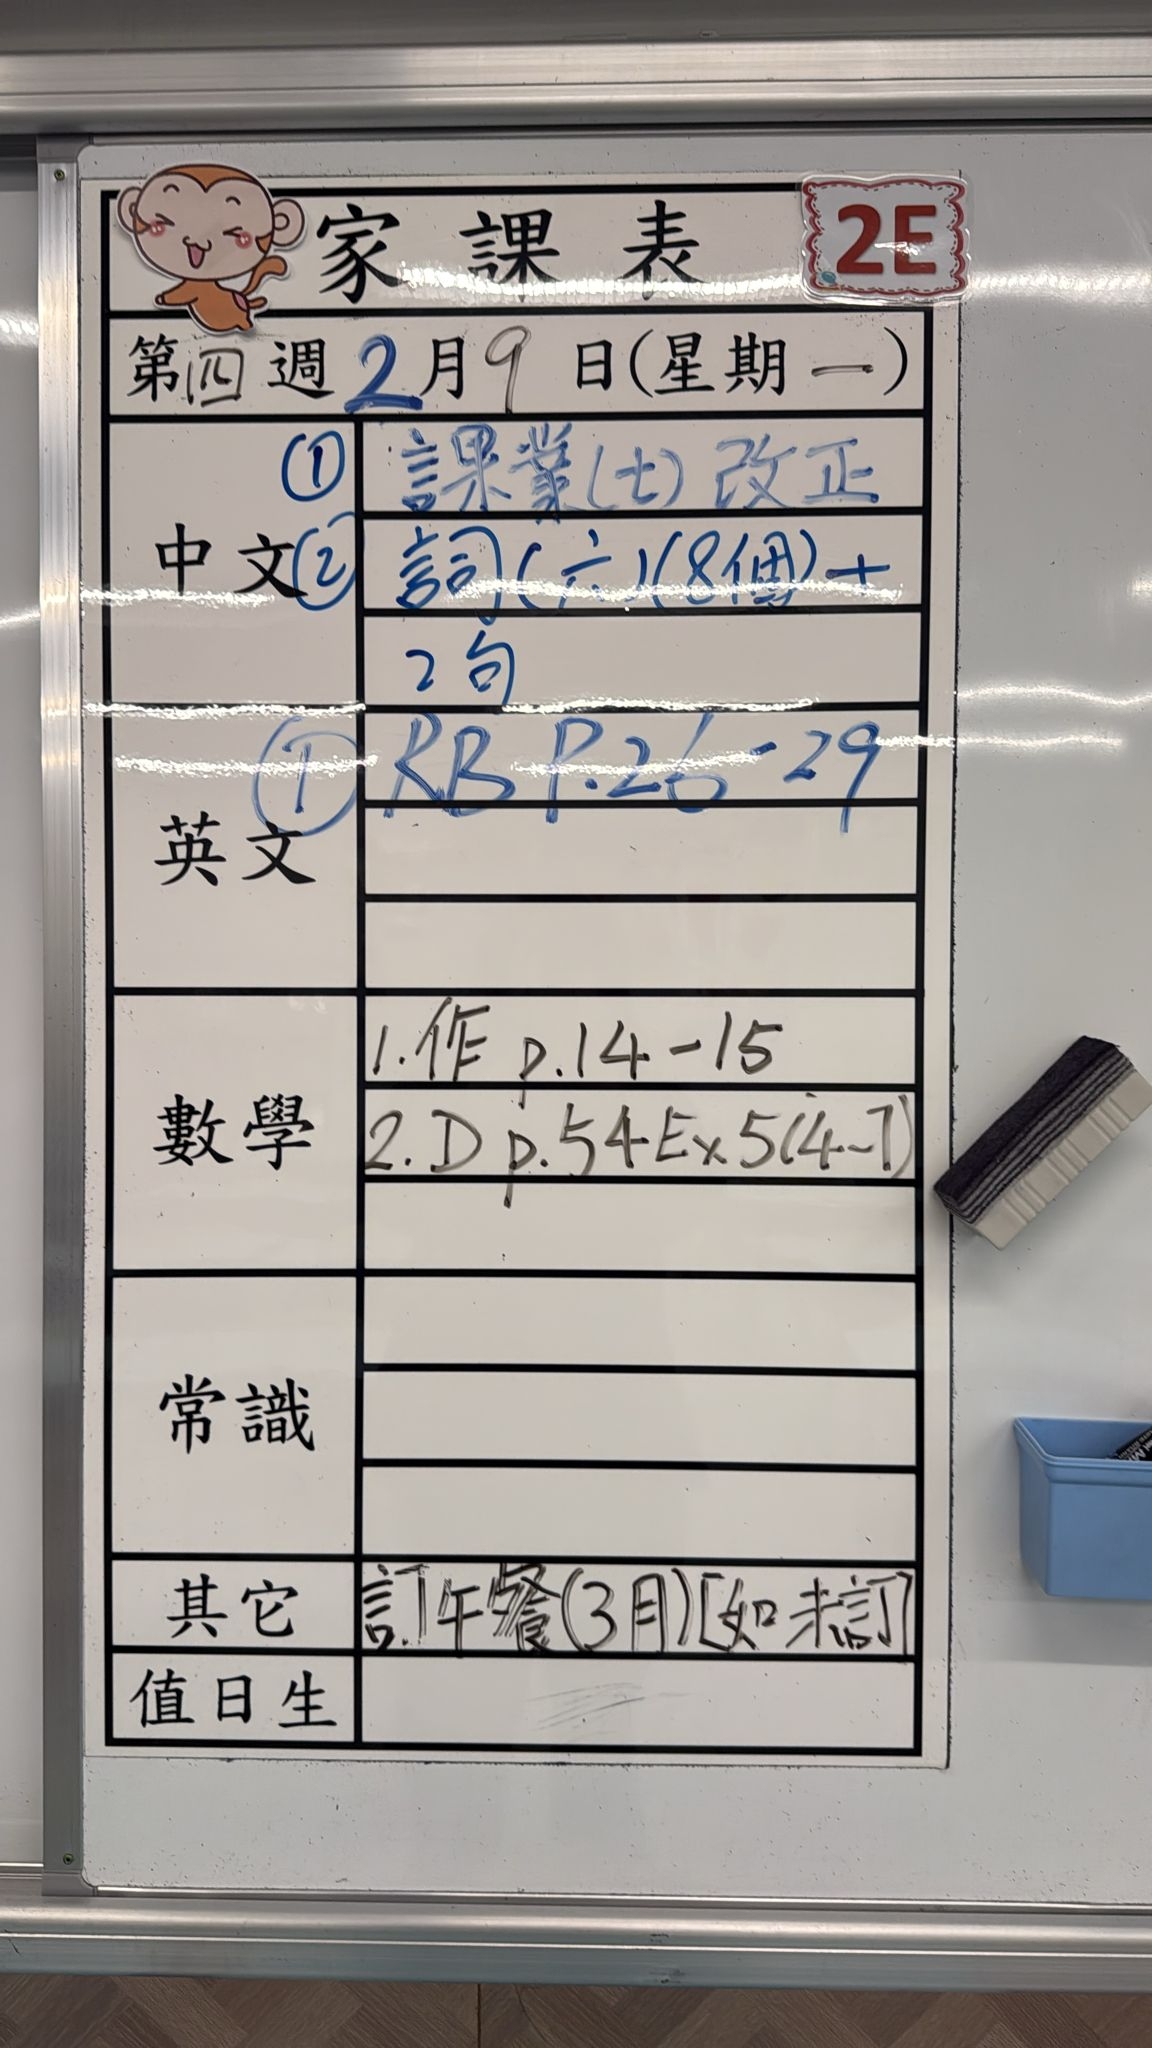 家課表 2E
第四週 2月9日(星期一)
中文
① 課業(七)改正
② 詞(六)(8個)+
2句
英文
① RB P.26-29
數學
1.作 p.14-15
2.D p.54 Ex 5(4-7)
常識
其它
訂午餐(3月)[如未訂]
值日生